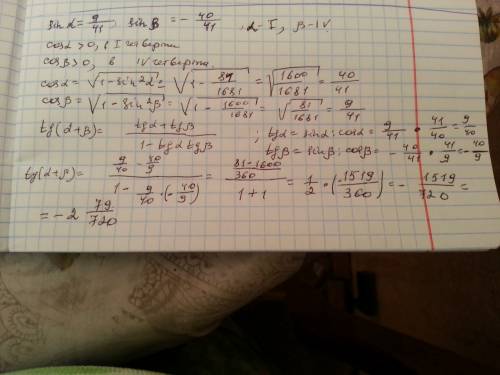 sin α = 9/41, sin β = − 40/41, α - I, β - IV
cos α > 0, в I четверти
cos β > 0, в IV четверти.
cos α = √(1 − sin²α) = √(1 − 81/1681) = √(1600/1681) = 40/41
cos β = √(1 − sin²β) = √(1 − 1600/1681) = √(81/1681) = 9/41
tg(α+β) = (tg α + tg β)/(1 − tg α tg β) ; tg α = sin α : cos α = 9/41 · 41/40 = 9/40
tg β = sin β : cos β = − 40/41 · 41/9 = − 40/9
tg(α+β) = (9/40 − 40/9)/(1 − 9/40 · (− 40/9)) = ((81 − 1600)/360)/(1 + 1) = 1/2 · (− 1519/360) = − 1519/720 =
= − 2 79/720